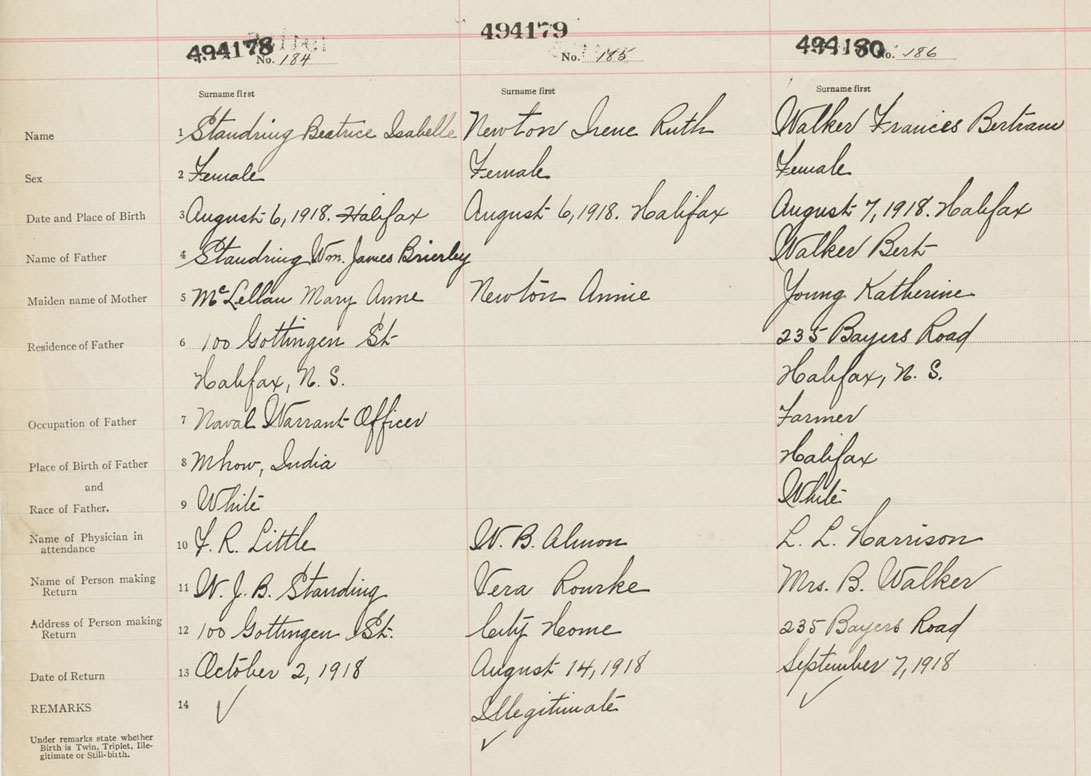 494178 494179 494180
No. 184 No. 185 No. 186
Surname first Surname first Surname first
Name 1 Standring Beatrice Isabelle Newton Irene Ruth Walker Frances Bertram
Sex 2 Female Female Female
Date and Place of Birth 3 August 6, 1918. Halifax August 6, 1918. Halifax August 7, 1918. Halifax
Name of Father 4 Standring Wm. James Brierley Walker Bert
Maiden name of Mother 5 McLellan Mary Anne Newton Annie Young Katherine
Residence of Father 6 100 Gottingen St. 235 Bayers Road
Halifax, N. S. Halifax, N. S.
Occupation of Father 7 Naval Warrant Officer Farmer
Place of Birth of Father 8 Mhow, India Halifax
and
Race of Father. 9 White White
Name of Physician in
attendance 10 F. R. Little W. B. Almon L. L. Harrison
Name of Person making
Return 11 W. J. B. Standing Vera Rourke Mrs. B. Walker
Address of Person making
Return 12 100 Gottingen St. City Home 235 Bayers Road
Date of Return 13 October 2, 1918 August 14, 1918 September 7, 1918
REMARKS 14 ✓ Illegitimate ✓
Under remarks state whether ✓
Birth is Twin, Triplet, Ille-
gitimate or Still-birth.